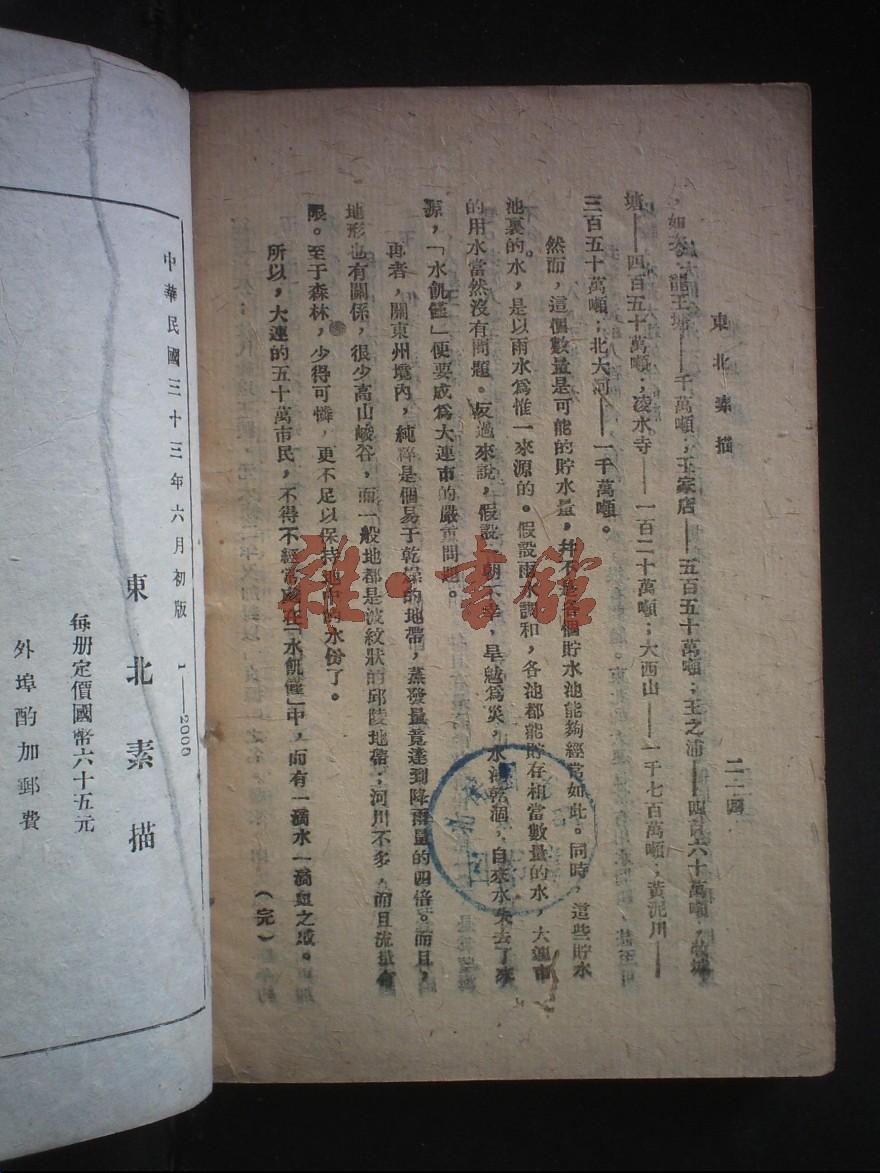 東北素描
二二四
，如龍王塘——千萬噸；王家店——五百五十萬噸；王之浦——四百六十萬噸，牧城
塘——四百五十萬噸；凌水寺——一百二十萬噸；大西山——一千七百萬噸；黃泥川——
三百五十萬噸；北大河——一千萬噸。
然而，這個數量是可能的貯水量，幷不是各個貯水池能夠經常如此。同時，這些貯水
池裏的水，是以雨水爲惟一來源的。假設雨水調和，各池都能貯存相當數量的水，大連市
的用水當然沒有問題。反過來說，假設一朝不幸，旱魃爲災，水海乾涸，自來水失去了來
源，「水飢饉」便要成爲大連市的嚴重問題。
再者，關東州境內，純粹是個易于乾燥的地帶，蒸發量竟達到降雨量的四倍。而且，
地形也有關係，很少高山峻谷，而一般地都是波紋狀的邱陵地帶；河川不多，而且流量有
限。至于森林，少得可憐，更不足以保持地中的水份了。
所以，大連的五十萬市民，不得不經常處在「水飢饉」中，而有一滴水一滴血之感。
（完）
雜·書館
中華民國三十三年六月初版
1——2000
東北素描
每册定價國幣六十五元
外埠酌加郵費